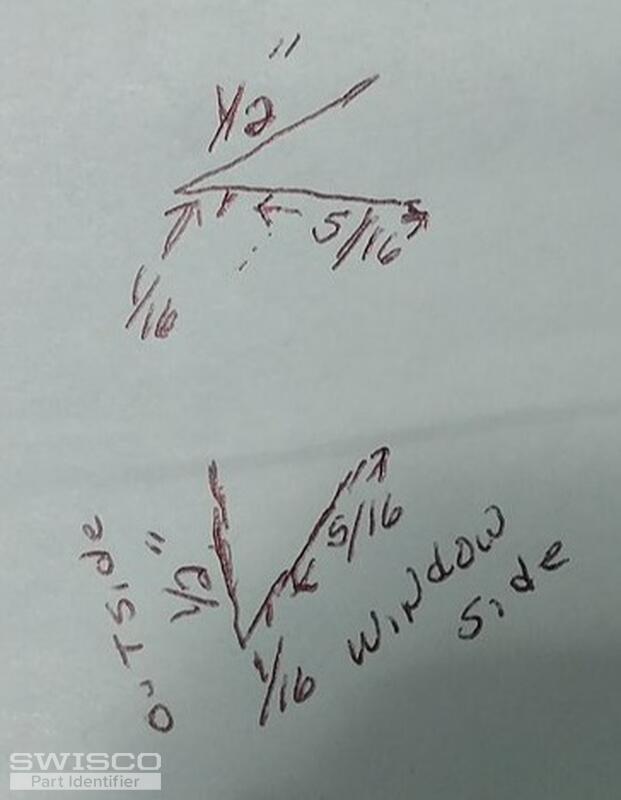 1/2"
5/16
1/16
OUTSide
1/2"
5/16
1/16
WINdOW
Side
SWISCO
Part Identifier